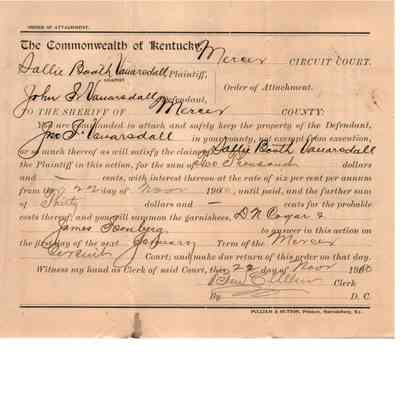 ORDER OF ATTACHMENT.
The Commonwealth of Kentucky, Mercer CIRCUIT COURT.
Sallie Booth Vanarsdall Plaintiff,
AGAINST
Order of Attachment.
John S. Vanarsdall Defendant,
TO THE SHERIFF OF Mercer COUNTY:
You are commanded to attach and safely keep the property of the Defendant,
Jno S. Vanarsdall in your county, not exempt from execution,
or so much thereof as will satisfy the claim of Sallie Booth Vanarsdall
the Plaintiff in this action, for the sum of two Thousand dollars
and — cents, with interest thereon at the rate of six per cent per annum
from the 22 day of Nov 1900, until paid, and the further sum
of Thirty dollars and — cents for the probable
costs thereof; and you will summon the garnishees, D. N. Cogar &
James Isenberg to answer in this action on
the first day of the next January Term of the Mercer
Circuit Court; and make due return of this order on that day.
Witness my hand as Clerk of said Court, this 22 day of Nov 1900
Ben C Allin Clerk
By D. C.
PULLIAM & HUTTON, Printers, Harrodsburg, Ky.